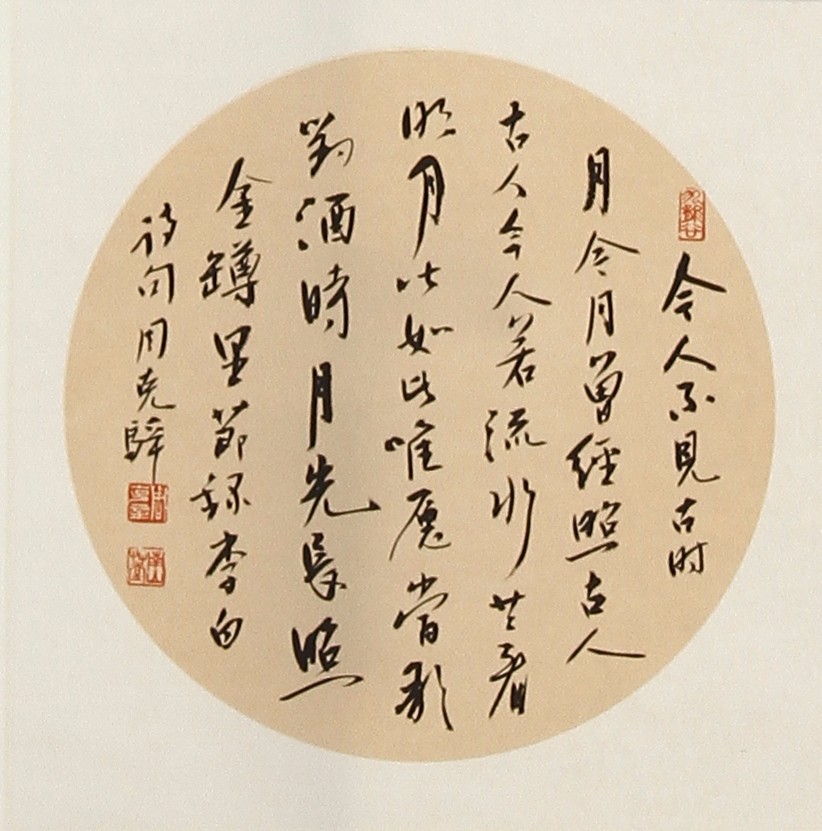 今人不見古时
月今月曾經照古人
古人今人若流水共看
明月皆如此唯愿當歌
對酒時月光長照
金罇里節録李白
诗句周克